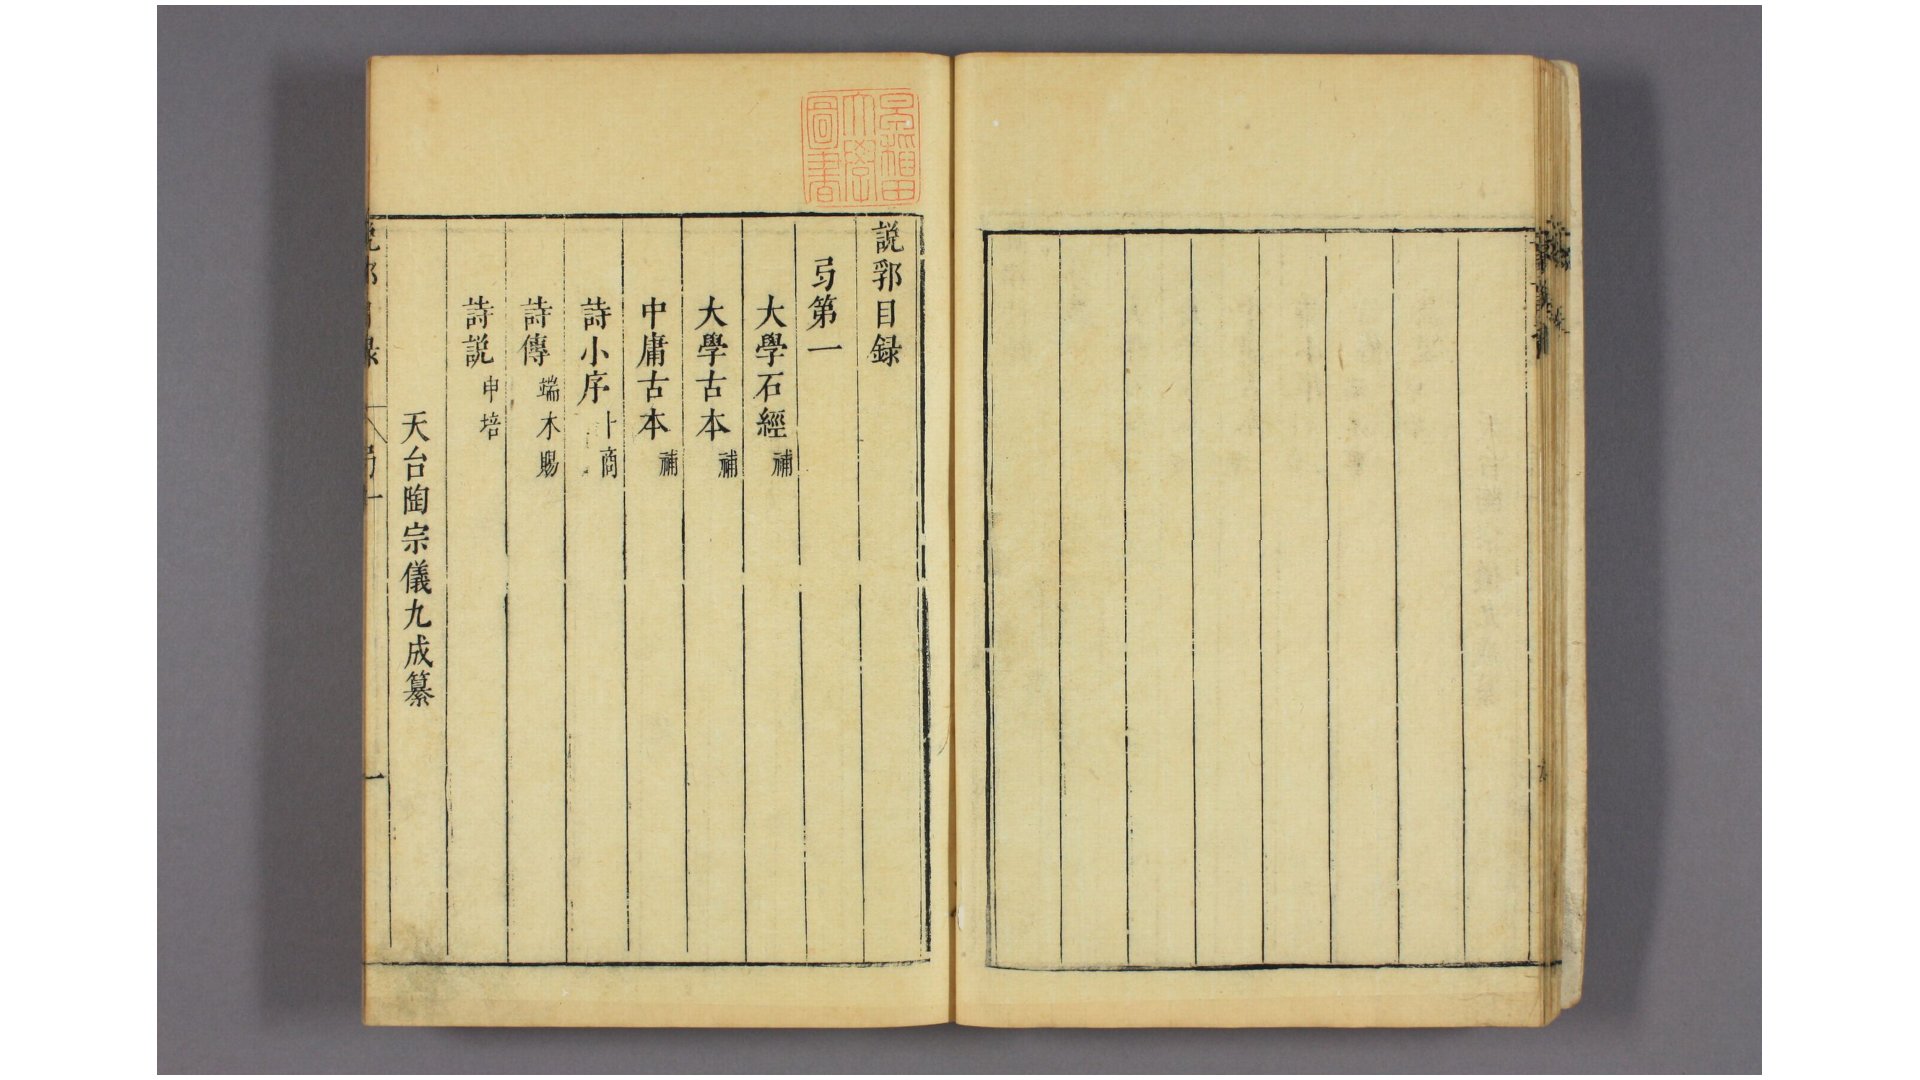 説郛目録
弓第一
大學石經 補
大學古本 補
中庸古本 補
詩小序 卜商
詩傳 端木賜
詩説 申培
天台陶宗儀九成纂
早稻田大學圖書